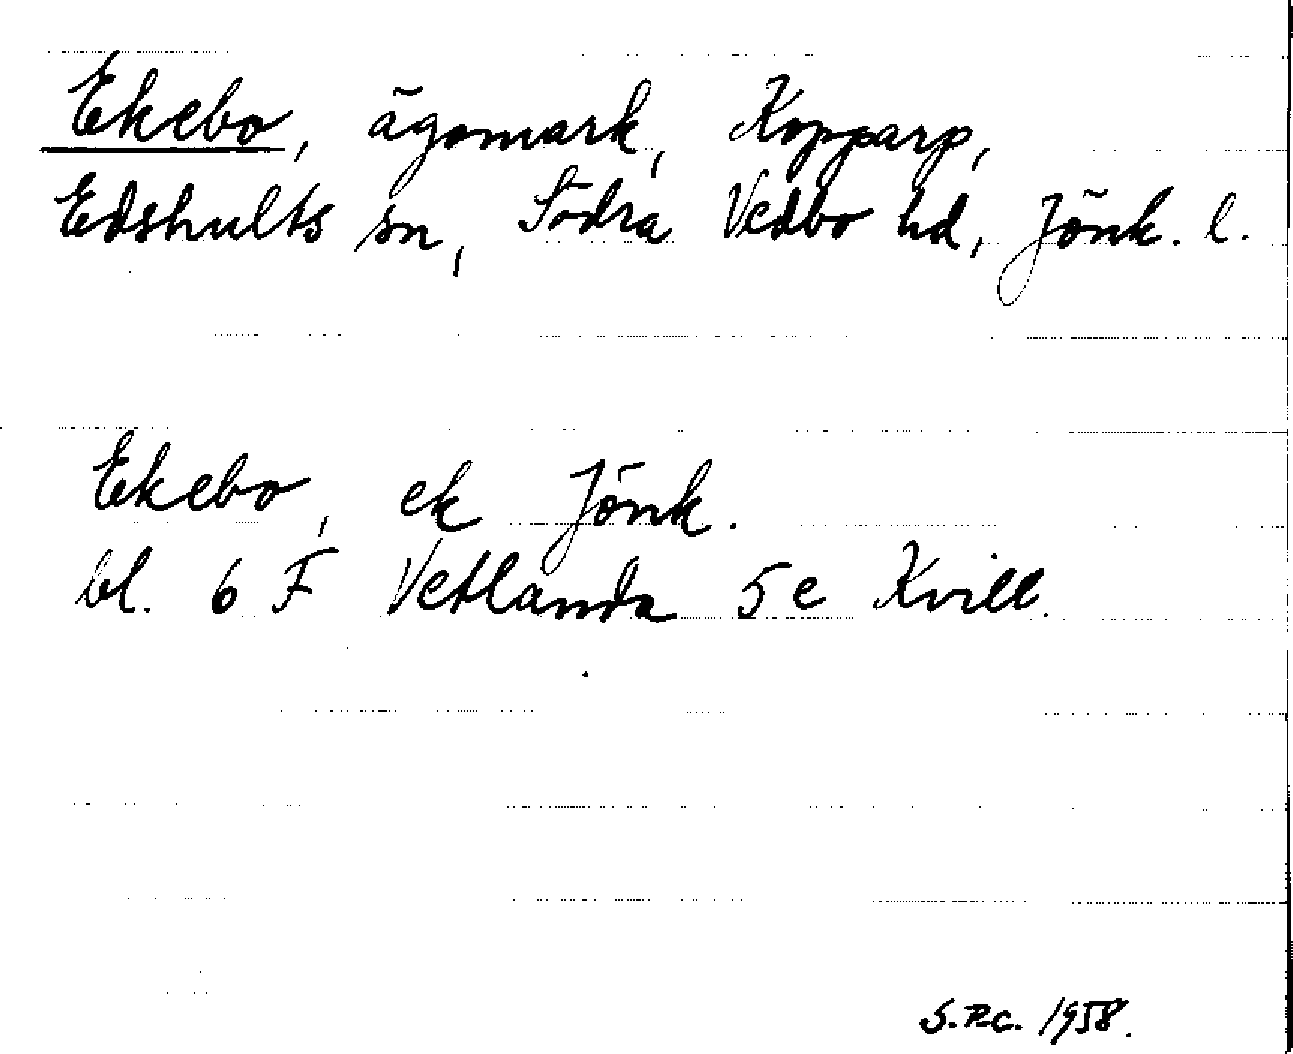 Ekebo, ägomark, Kopparp,
Edshults sn, Södra Vedbo hd, Jönk. l.
Ekebo, ek Jönk.
bl. 6 F Vetlanda 5 e Kvill.
S.P.C. 1958.